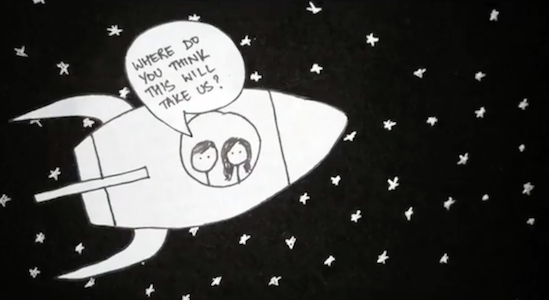 WHERE DO
YOU THINK
THIS WILL
TAKE US?